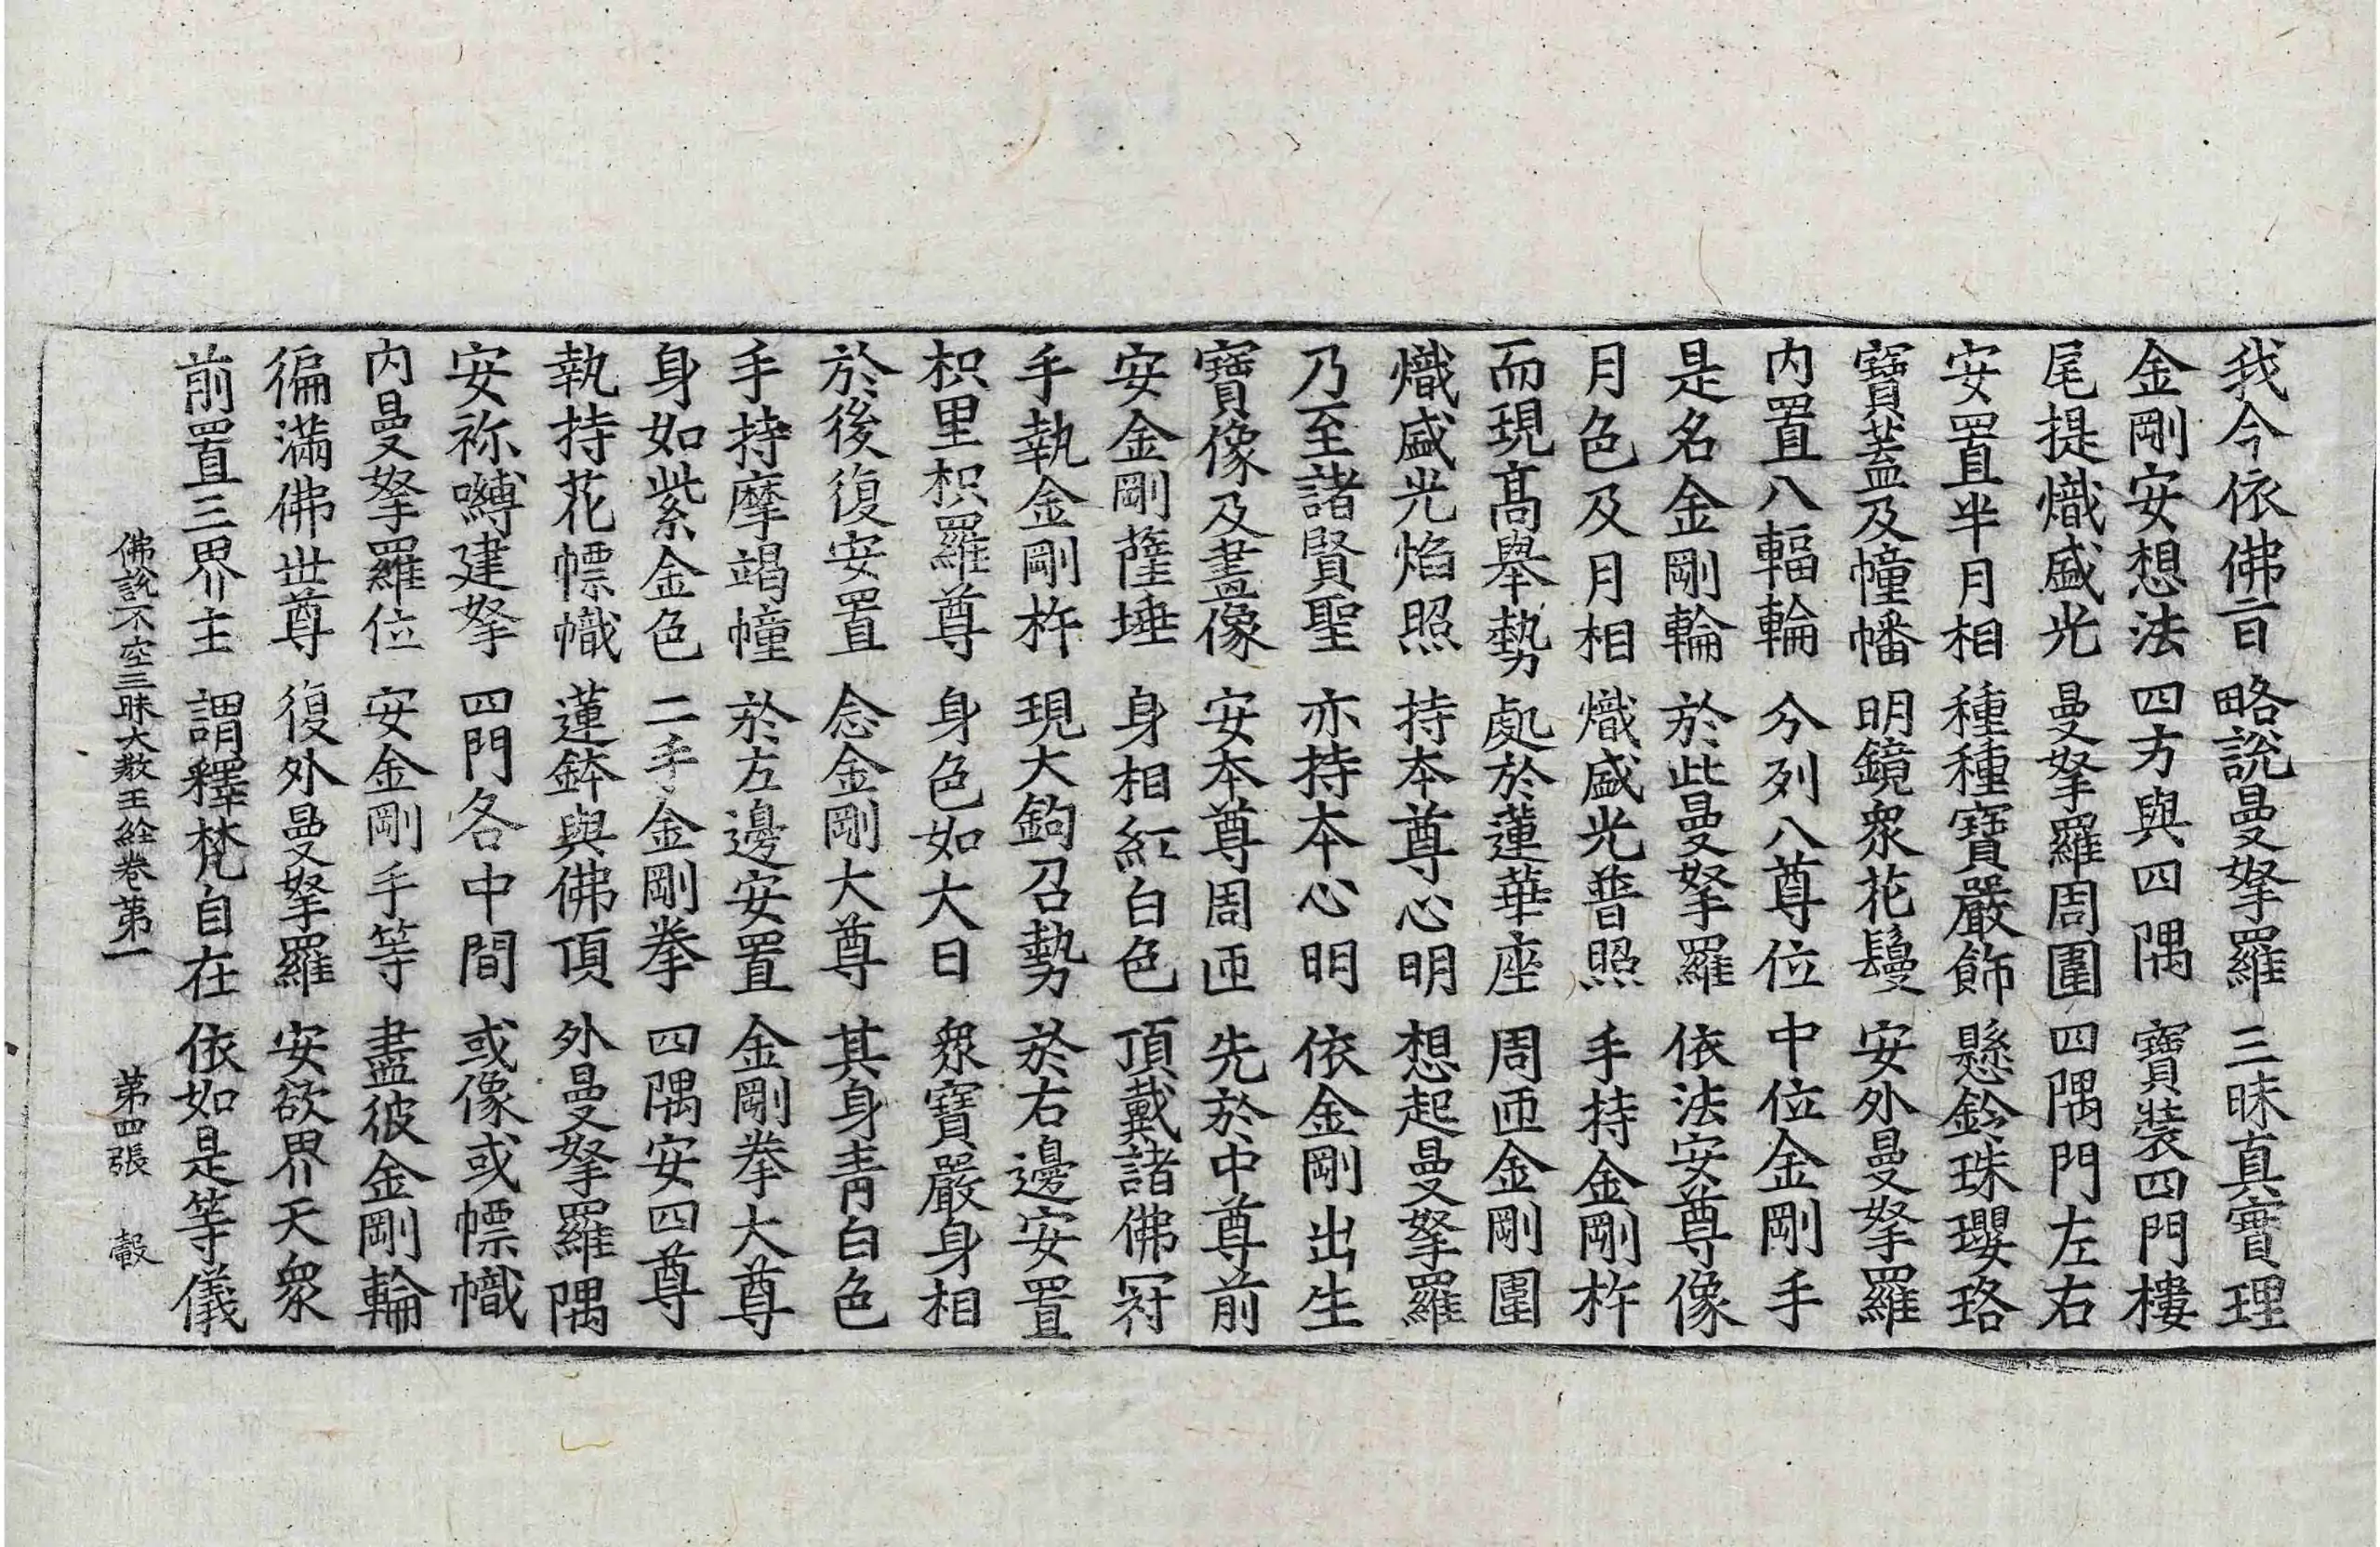 我今依佛言 略說曼拏羅 三昧真實理
金剛安想法 四方與四隅 寶裝四門樓
尾提熾盛光 曼拏羅周圍 四隅門左右
安置半月相 種種寶嚴飾 懸鈴珠瓔珞
寶蓋及幢幡 明鏡眾花鬘 安外曼拏羅
内置八輻輪 分列八尊位 中位金剛手
是名金剛輪 於此曼拏羅 依法安尊像
月色及月相 熾盛光普照 手持金剛杵
而現髙舉勢 處於蓮華座 周匝金剛圍
熾盛光焰照 持本尊心明 想起曼拏羅
乃至諸賢聖 亦持本心明 依金剛出生
寶像及畫像 安本尊周匝 先於中尊前
安金剛薩埵 身相紅白色 頂戴諸佛冠
手執金剛杵 現大鉤召勢 於右邊安置
枳里枳羅尊 身色如大日 眾寶嚴身相
於後復安置 念金剛大尊 其身青白色
手持摩竭幢 於左邊安置 金剛拳大尊
身如紫金色 二手金剛拳 四隅安四尊
執持花幖幟 蓮鉢與佛頂 外曼拏羅隅
安祢嚩建拏 四門各中間 或像或幖幟
内曼拏羅位 安金剛手等 盡彼金剛輪
徧滿佛世尊 復外曼拏羅 安欲界天眾
前置三界主 謂釋梵自在 依如是等儀
佛說不空三昧大教王經卷第一 第四張 轂